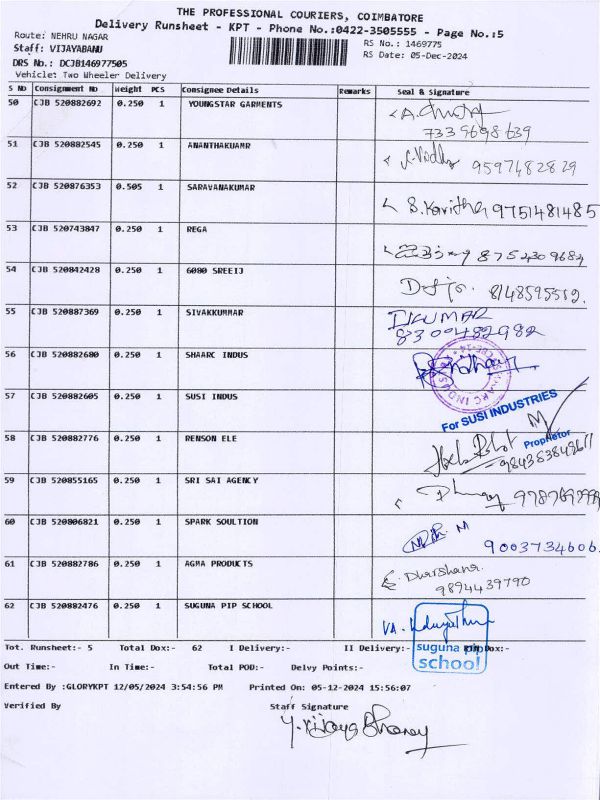 THE PROFESSIONAL COURIERS, COIMBATORE
Delivery Runsheet - KPT - Phone No.:0422-3505555 - Page No.:5
Route: NEHRU NAGAR
Staff: VIJAYABANU
RS No.: 1469775
RS Date: 05-Dec-2024
DRS No.: DCJB146977505
Vehicle: Two Wheeler Delivery
S No Consignment No Weight PCS Consignee Details Remarks Seal & Signature
50 CJB 520882692 0.250 1 YOUNGSTAR GARMENTS
7339698639
51 CJB 520882545 0.250 1 ANANTHAKUAMR
9597482829
52 CJB 520876353 0.505 1 SARAVANAKUMAR
S. Kavitha 9751481485
53 CJB 520743847 0.250 1 REGA
8752309682
54 CJB 520842428 0.250 1 6080 SREEIJ
8148595512.
55 CJB 520887369 0.250 1 SIVAKKUMAR
KUMAR
8300482982
56 CJB 520882680 0.250 1 SHAARC INDUS
57 CJB 520882605 0.250 1 SUSI INDUS
For SUSI INDUSTRIES
Proprietor
58 CJB 520882776 0.250 1 RENSON ELE
59 CJB 520855165 0.250 1 SRI SAI AGENCY
60 CJB 520806821 0.250 1 SPARK SOULTION
9003734606
61 CJB 520882786 0.250 1 AGMA PRODUCTS
Dharshana.
9894439790
62 CJB 520882476 0.250 1 SUGUNA PIP SCHOOL
suguna pip
school
Tot. Runsheet:- 5 Total Dox:- 62 I Delivery:- II Delivery:- Dox:-
Out Time:- In Time:- Total POD:- Delvy Points:-
Entered By :GLORYKPT 12/05/2024 3:54:56 PM Printed On: 05-12-2024 15:56:07
Verified By Staff Signature